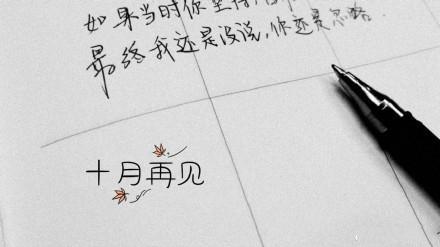 如果当时你坚持,
最终我还是没说,你还是忽略.
十月再见